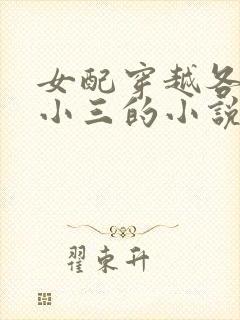 女配穿越各
小三的小説
翟東升